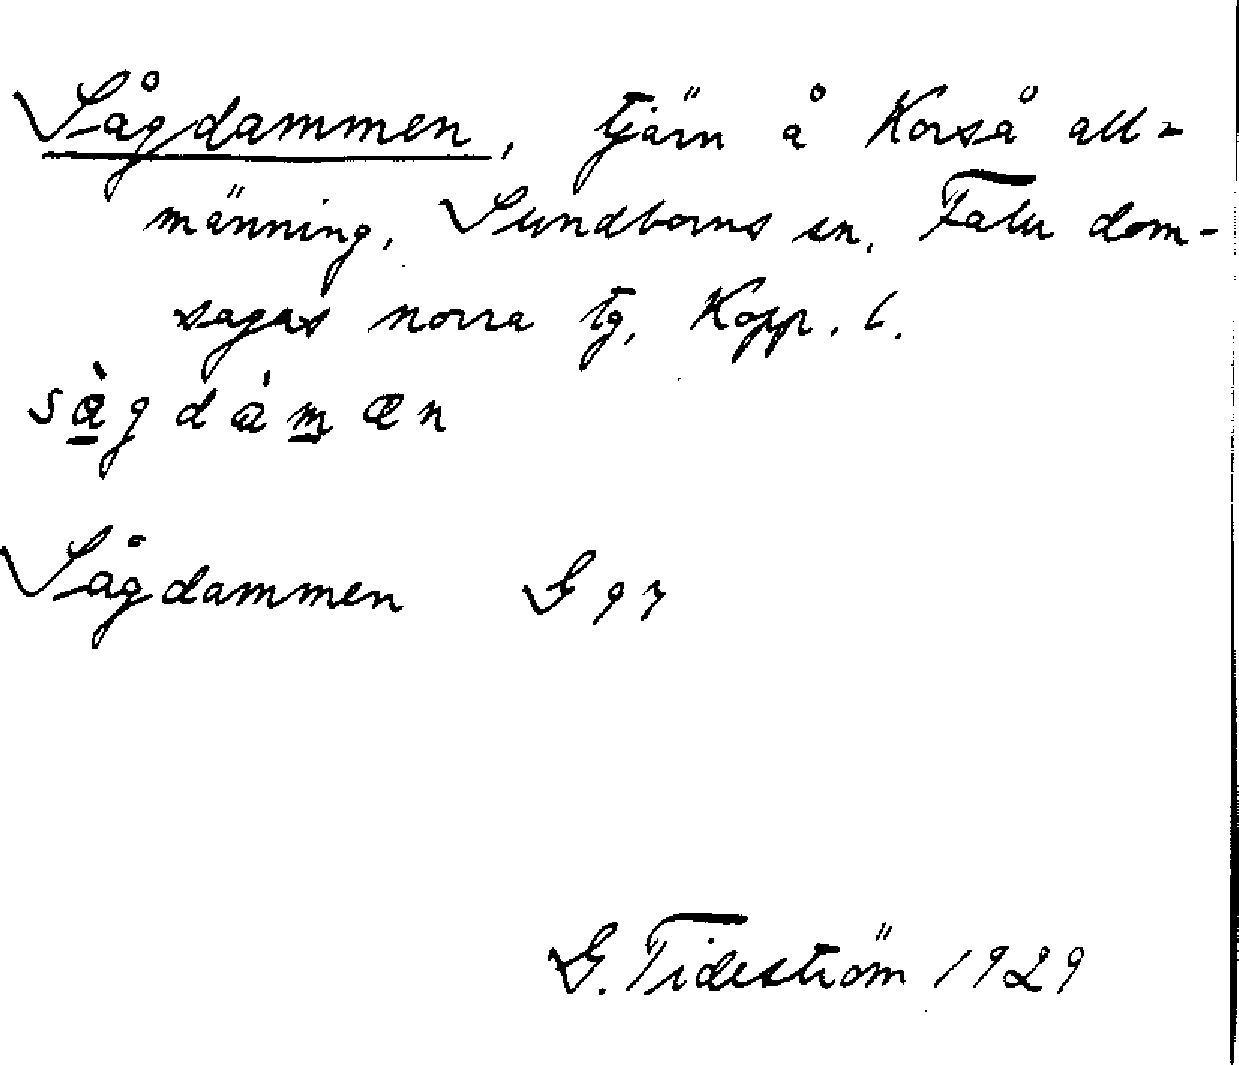 Sågdammen, tjärn å Korså all-
männing, Sundborns sn, Falu dom-
sagas norra tg, Kopp. l.
sàgdámæn
Sågdammen G 97
G. Tideström 1929